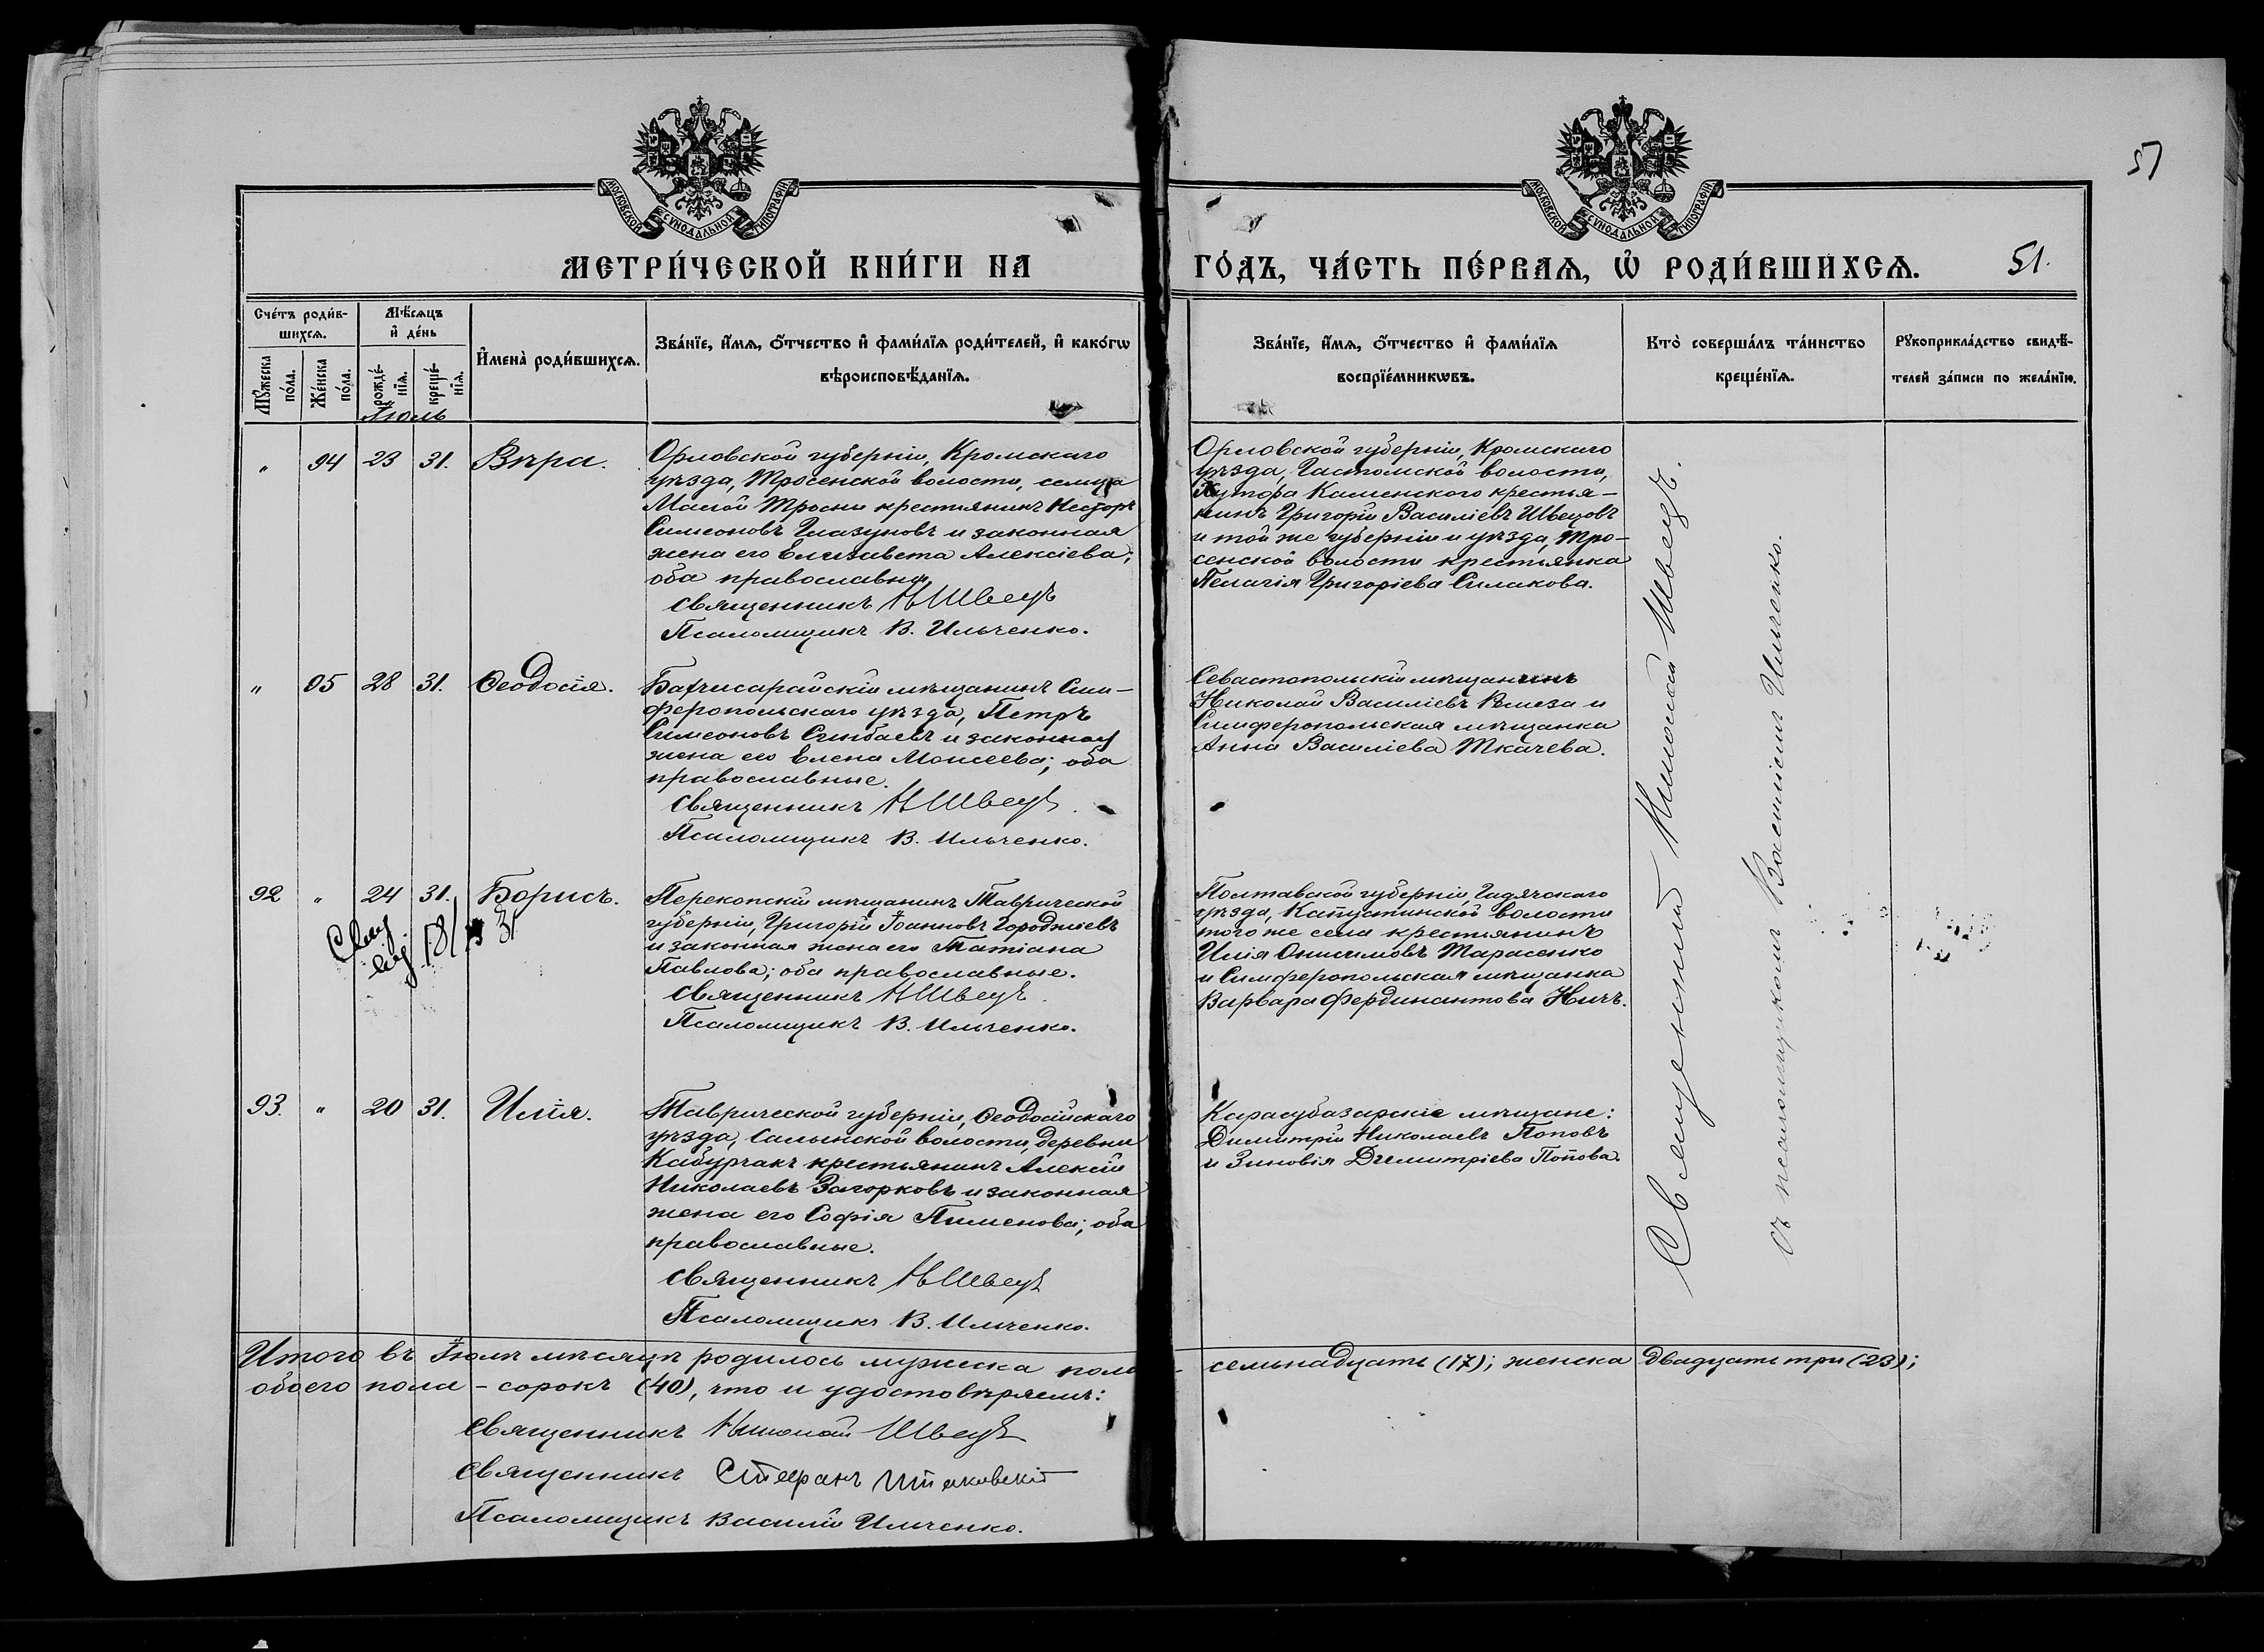 57
МОСКОВСКОЙ СУНОДАЛЬНОЙ ТИПОГРАФІИ
МОСКОВСКОЙ СУНОДАЛЬНОЙ ТИПОГРАФІИ
МЕТРИ́ЧЕСКОЙ КНИ́ГИ НА
ГО́ДЪ, ЧА́СТЬ ПЕ́РВАѦ, Ѡ҆ РОДИ́ВШИХСѦ.
51.
Сче́тъ роди́в-
шихсѧ.
Мѣ́сѧцъ
и҆ де́нь
Мꙋ́жеска
по́ла.
Же́нска
по́ла.
рожде́-
нїѧ.
креще́-
нїѧ.
И҆мена̀ роди́вшихсѧ.
Зва́нїе, и҆́мѧ, ѻ҆́тчество и҆ фами́лїѧ роди́телей, и҆ како́гѡ
вѣроисповѣ́данїѧ.
Зва́нїе, и҆́мѧ, ѻ҆́тчество и҆ фами́лїѧ
воспрїе́мникѡвъ.
Кто̀ соверша́лъ та́инство
креще́нїѧ.
Рꙋкоприкла́дство свидѣ́-
телей за́писи по жела́нїю.
Іюль
" 94 23 31. Вѣра.
Орловской губерніи, Кромскаго
уѣзда, Тросенской волости, сельца
Малой Тросни крестьянинъ Несторъ
Симеоновъ Глазуновъ и законная
жена его Елизавета Алексіева;
оба православны.
Священникъ Н Швецъ
Псаломщикъ В. Ильченко.
Орловской губерніи, Кромскаго
уѣзда, Гастомской волости,
Хутора Каменского крестья-
нинъ Григорій Василіевъ Швецовъ
и той же губерніи и уѣзда, Тро-
сенской волости крестьянка
Пелагія Григоріева Силакова.
" 95 28 31. Ѳеодосія.
Бахчисарайскій мѣщанинъ Сим-
феропольскаго уѣзда, Петръ
Симеоновъ и законная
жена его Елена Моисеева; оба
православные.
Священникъ Н Швецъ.
Псаломщикъ В. Ильченко.
Севастопольскій мѣщанинъ
Николай Василіевъ Ремеза и
Симферопольская мѣщанка
Анна Василіева Ткачева.
92 " 24 31. Борисъ.
Перекопскій мѣщанинъ Таврической
губерніи, Григорій Іоанновъ
и законная жена его Татіана
Павлова; оба православные.
Священникъ Н Швецъ.
Псаломщикъ В. Ильченко.
Полтавской губерніи, Гадячскаго
уѣзда, Капустинской волости
того же села крестьянинъ
Илія Онисимовъ Тарасенко
и Симферопольская мѣщанка
Варвара Фердинантова Ничъ.
93. " 20 31. Илія.
Таврической губерніи, Ѳеодосійскаго
уѣзда, Салынской волости, деревни
Кабурчакъ крестьянинъ Алексій
Николаевъ Загорковъ и законная
жена его Софія Пименова; оба
православные.
Священникъ Н Швецъ
Псаломщикъ В. Ильченко.
Карасубазарскіе мѣщане:
Димитрій Николаевъ Поповъ
и Зиновія Димитріева Попова.
Священникъ Николай Швецъ.
съ псаломщикомъ Василіемъ Ильченко.
Итого въ Іюлѣ мѣсяцѣ родилось мужеска пола - семьнадцать (17); женска двадцать три (23);
обоего пола - сорокъ (40), что и удостовѣряемъ:
Священникъ Николай Швецъ
Священникъ Стефанъ
Псаломщикъ Василій Ильченко.